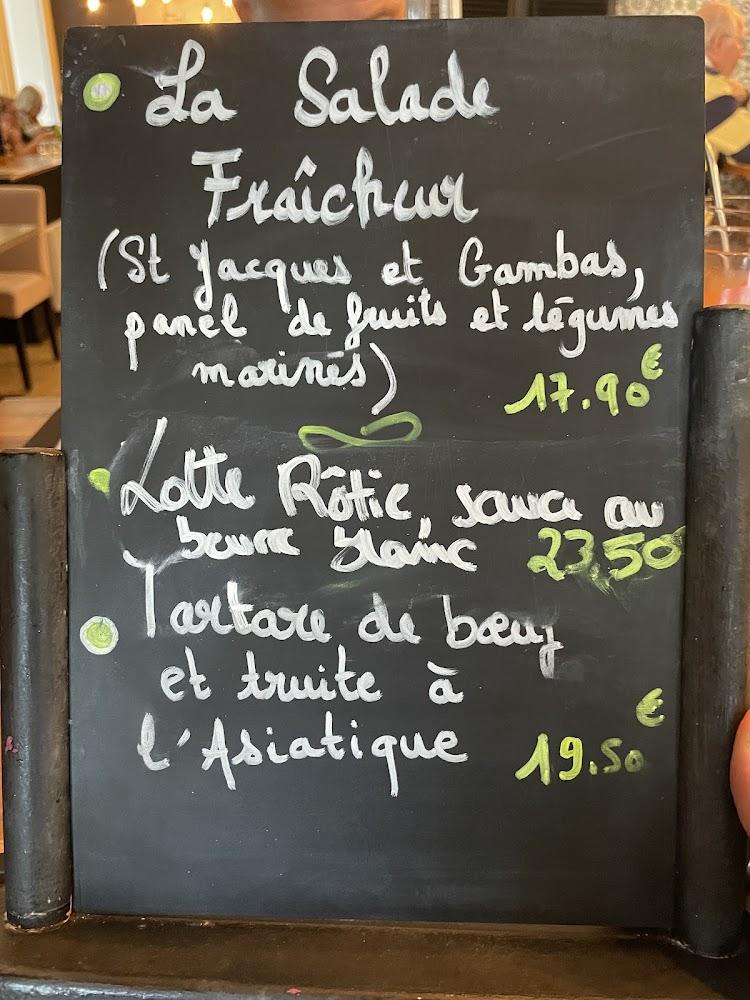 La Salade
Fraîcheur
(St Jacques et Gambas,
panel de fruits et légumes
marinés)
17.90€
Lotte Rôtie, sauce au
beurre blanc 23,50
Tartare de bœuf
et truite à
l'Asiatique
19.50€